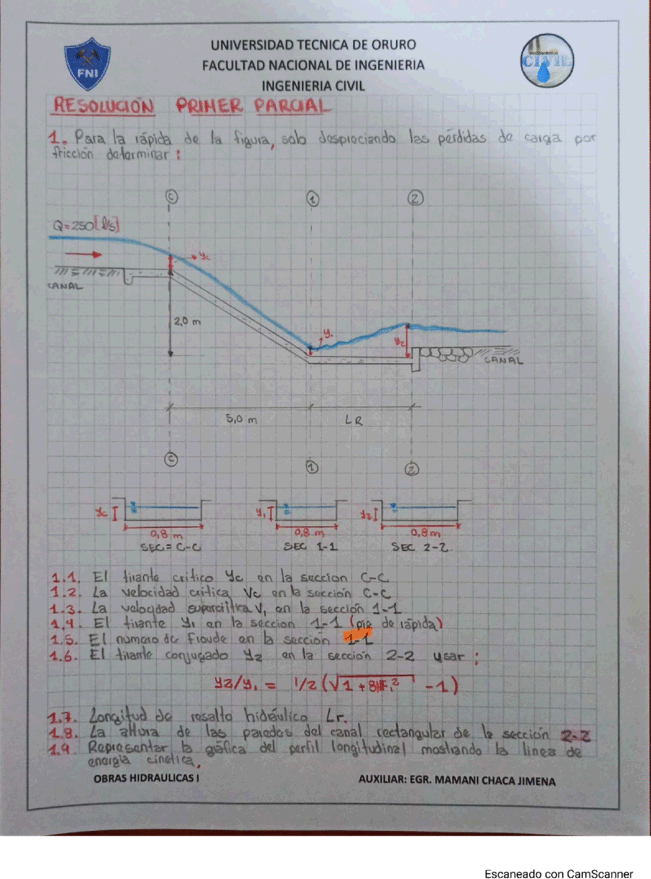 UNIVERSIDAD TECNICA DE ORURO
FACULTAD NACIONAL DE INGENIERIA
INGENIERIA CIVIL
FNI
CIVIL
RESOLUCIÓN PRIMER PARCIAL
1. Para la rápida de la figura, solo despreciando las pérdidas de carga por
fricción determinar:
C 1 2
Q=250[l/s]
yc
CANAL
2,0 m
y1
y2
CANAL
5,0 m LR
C 1 2
yc y1 y2
0,8 m 0,8 m 0,8 m
SEC= C-C SEC 1-1 SEC 2-2
1.1. El tirante crítico Yc en la seccion C-C
1.2. La velocidad crítica Vc en la sección C-C
1.3. La velocidad supercrítica V1 en la sección 1-1
1.4. El tirante Y1 en la seccion 1-1 (pie de rápida)
1.5. El número de Froude en la sección 1-1
1.6. El tirante conjugado Y2 en la sección 2-2 usar:
Y2/Y1 = 1/2 (√1+8F1² -1)
1.7. Longitud de resalto hidráulico Lr.
1.8. La altura de las paredes del canal rectangular de la sección 2-2
1.9 Representar la gráfica del perfil longitudinal mostrando la línea de
energía cinética.
OBRAS HIDRAULICAS I AUXILIAR: EGR. MAMANI CHACA JIMENA
Escaneado con CamScanner